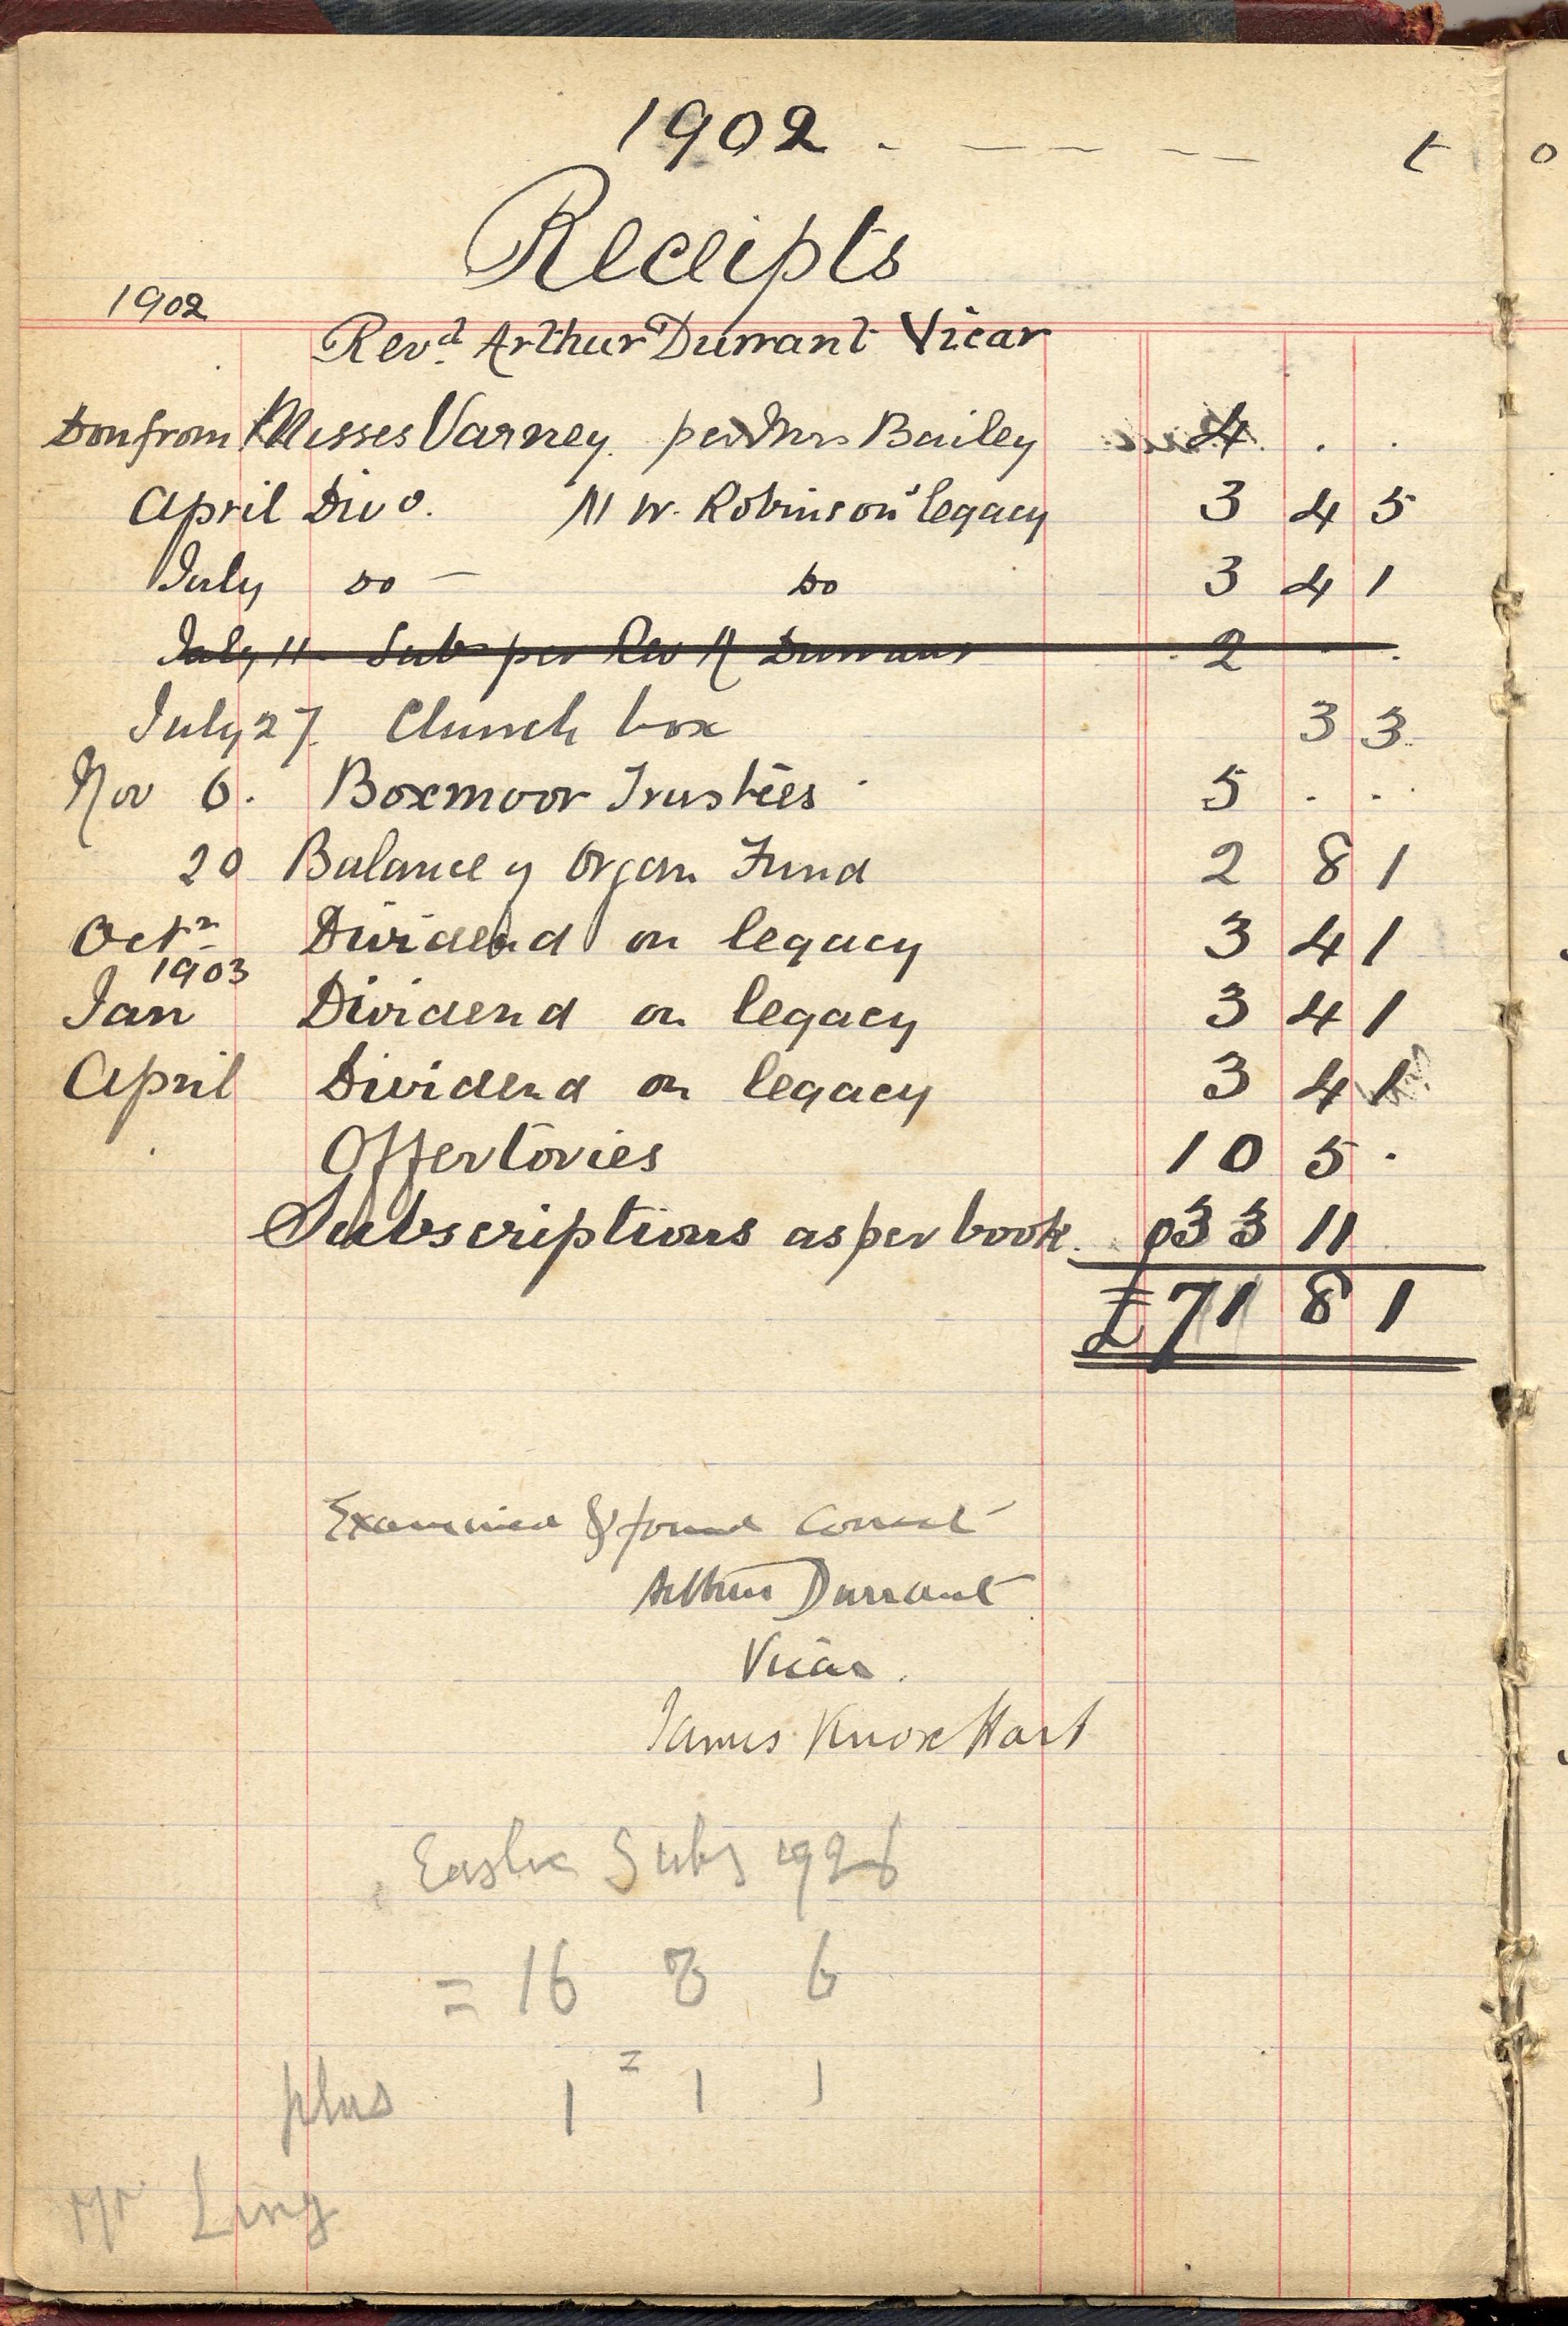 1902 - - - - - t o
Receipts
1902
Revd. Arthur Durrant Vicar
Don from Misses Varney. per Mrs Bailey 4 . .
April Divo. W. Robinson's legacy 3 4 5
July Do — Do 3 4 1
July 11 Sub per Rev A Durrant 2 . .
July 27. Church box 3 3
Nov 6. Boxmoor Trustees 5 . .
20 Balance of Organ Fund 2 8 1
Octr Dividend on legacy 3 4 1
1903
Jan Dividend on legacy 3 4 1
April Dividend on legacy 3 4 1
Offertories 10 5 .
Subscriptions as per book. 33 11
£71 8 1
Examined & found correct
Arthur Durrant
Vicar.
James Knox Hart
Easter Subs 1926
= 16 8 6
plus 1 = 1 1
Mr Ling